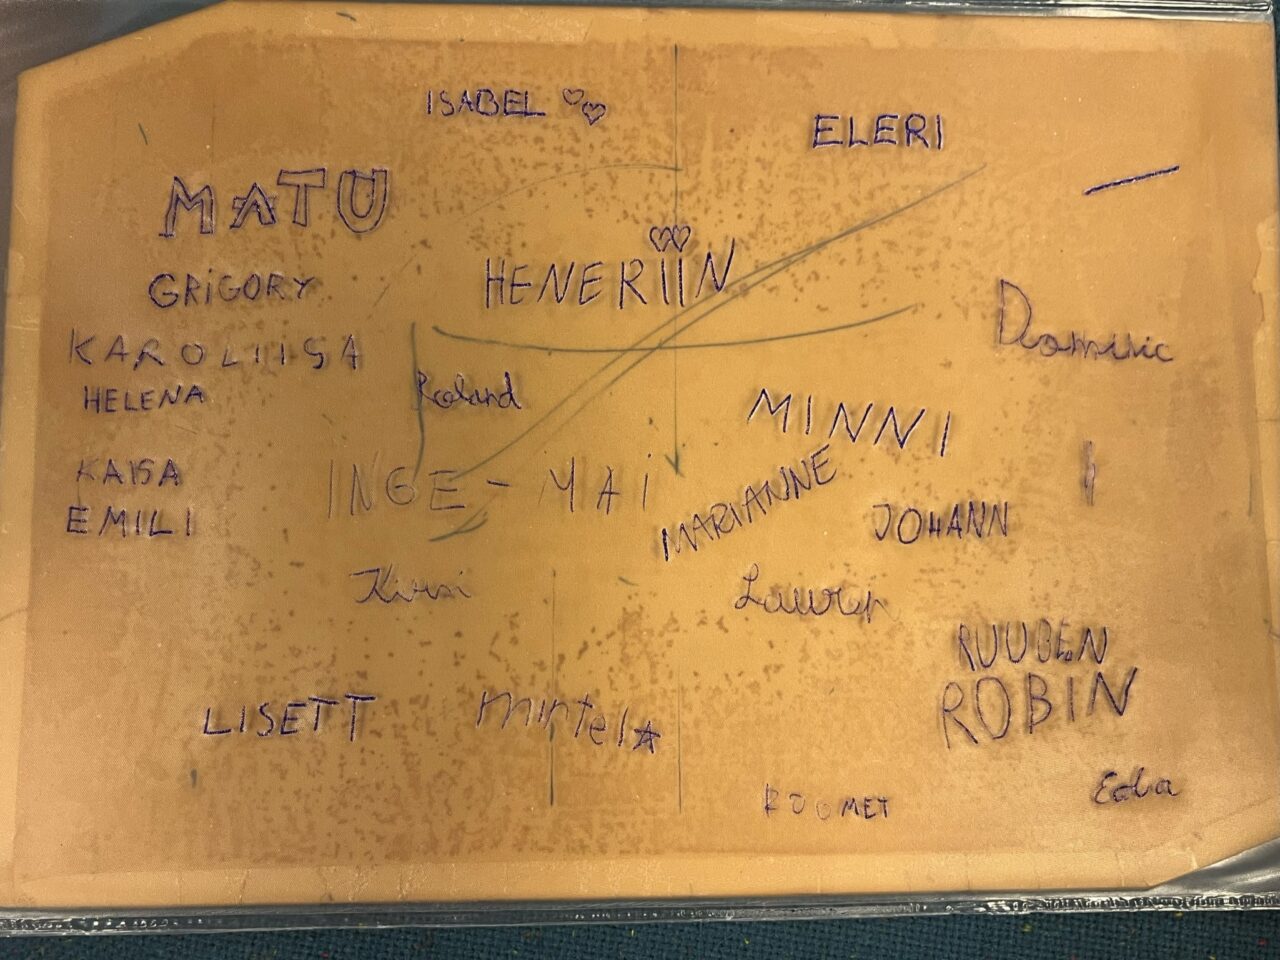 ISABEL
ELERI
MATU
HENERIIN
GRiGORY
Dominic
KAROLIISA
HELENA
Roland
MINNI
KAISA
INGE-MAi
MARIANNE
EMILI
JOHANN
Kirsi
Lauri
RUUBEN
ROBIN
LISETT
mirtel
Eda
ROOMET